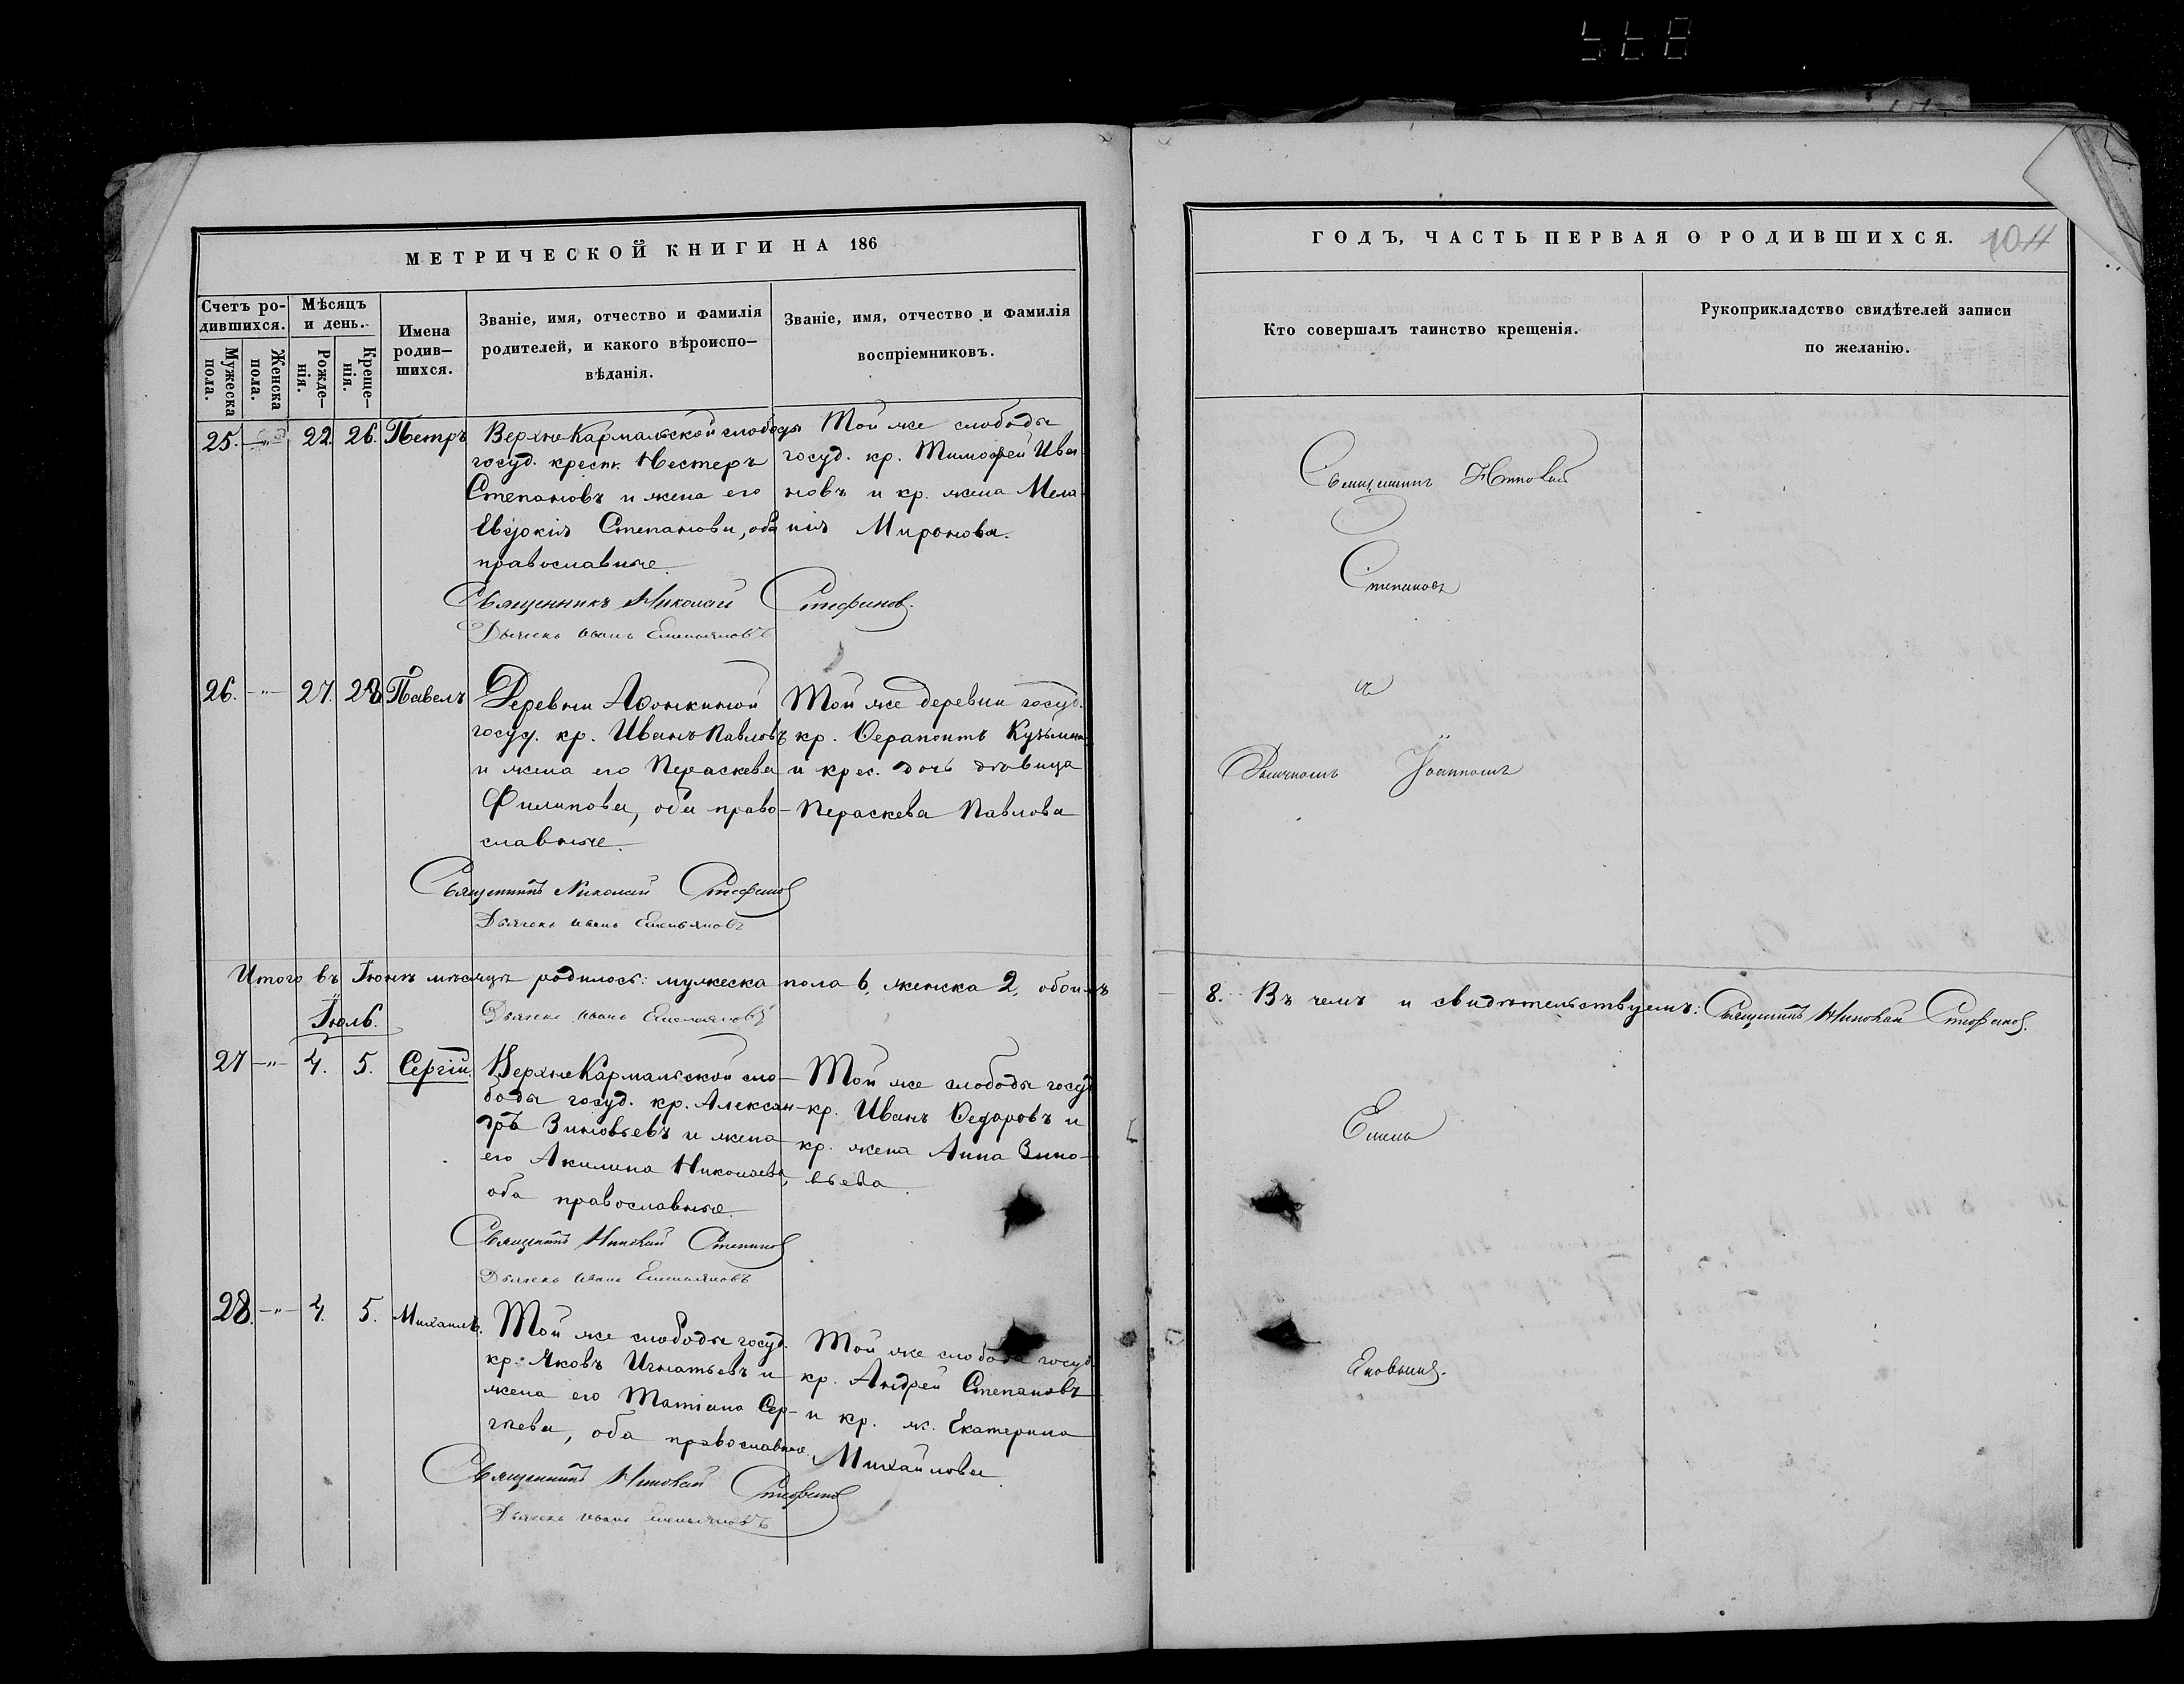 МЕТРИЧЕСКОЙ КНИГИ НА 186
Счетъ ро-
дившихся.
Мѣсяцъ
и день.
Мужеска
пола.
Женска
пола.
Рожде-
нія.
Креще-
нія.
Имена
родив-
шихся.
Званіе, имя, отчество и фамилія
родителей, и какого вѣроиспо-
вѣданія.
Званіе, имя, отчество и фамилія
воспріемниковъ.
25. -„- 22. 26. Петръ
ВерхнеКармальской слободы
госуд. крест. Нестеръ
Степановъ и жена его
Евдокія Степанова, оба
православные.
Той же слободы
госуд. кр. Тимоѳей Ива
новъ и кр. жена Мела-
нія Миронова.
Священникъ Николай Стефановъ.
Дьячекъ Иванъ Емельяновъ
26. -„- 27. 28 Павелъ
Деревни Аѳонькиной
госуд. кр. Иванъ Павловъ
и жена его Параскева
Филипова, оба право-
славные.
Той же деревни госуд.
кр. Ѳерапонтъ Кузьминъ
и крес. дочь дѣвица
Параскева Павлова
Священникъ Николай Стефановъ
Дьячекъ Иванъ Емельяновъ
Итого въ Іюнѣ мѣсяцѣ родилось: мужеска пола 6, женска 2, обоихъ
Іюль.
Дьячекъ Иванъ Емельяновъ
27 -„- 4. 5. Сергій
ВерхнеКармальской сло-
боды госуд. кр. Алексан-
дръ Зиновьевъ и жена
его Акилина Николаева,
оба православные.
Той же слободы госуд
кр. Иванъ Ѳедоровъ и
кр. жена Анна Зино-
вьева.
Священникъ Николай Степановъ
Дьячекъ Иванъ Емельяновъ
28. -„- 4. 5. Михаилъ.
Той же слободы госуд.
кр. Яковъ Игнатьевъ и
жена его Татіана Сер-
гѣева, оба православные.
Той же слободы госуд.
кр. Андрей Степановъ
и кр. ж. Екатерина
Михайлова
Священникъ Николай Стефановъ
Дьячекъ Иванъ Емельяновъ
ГОДЪ, ЧАСТЬ ПЕРВАЯ О РОДИВШИХСЯ.
104
Кто совершалъ таинство крещенія.
Рукоприкладство свидѣтелей записи
по желанію.
Священникъ Николай
Степановъ
и
Дьячкомъ Іоанномъ
8. Въ чемъ и свидѣтельствуемъ: Священникъ Николай Стефановъ.
Емель
яновымъ.